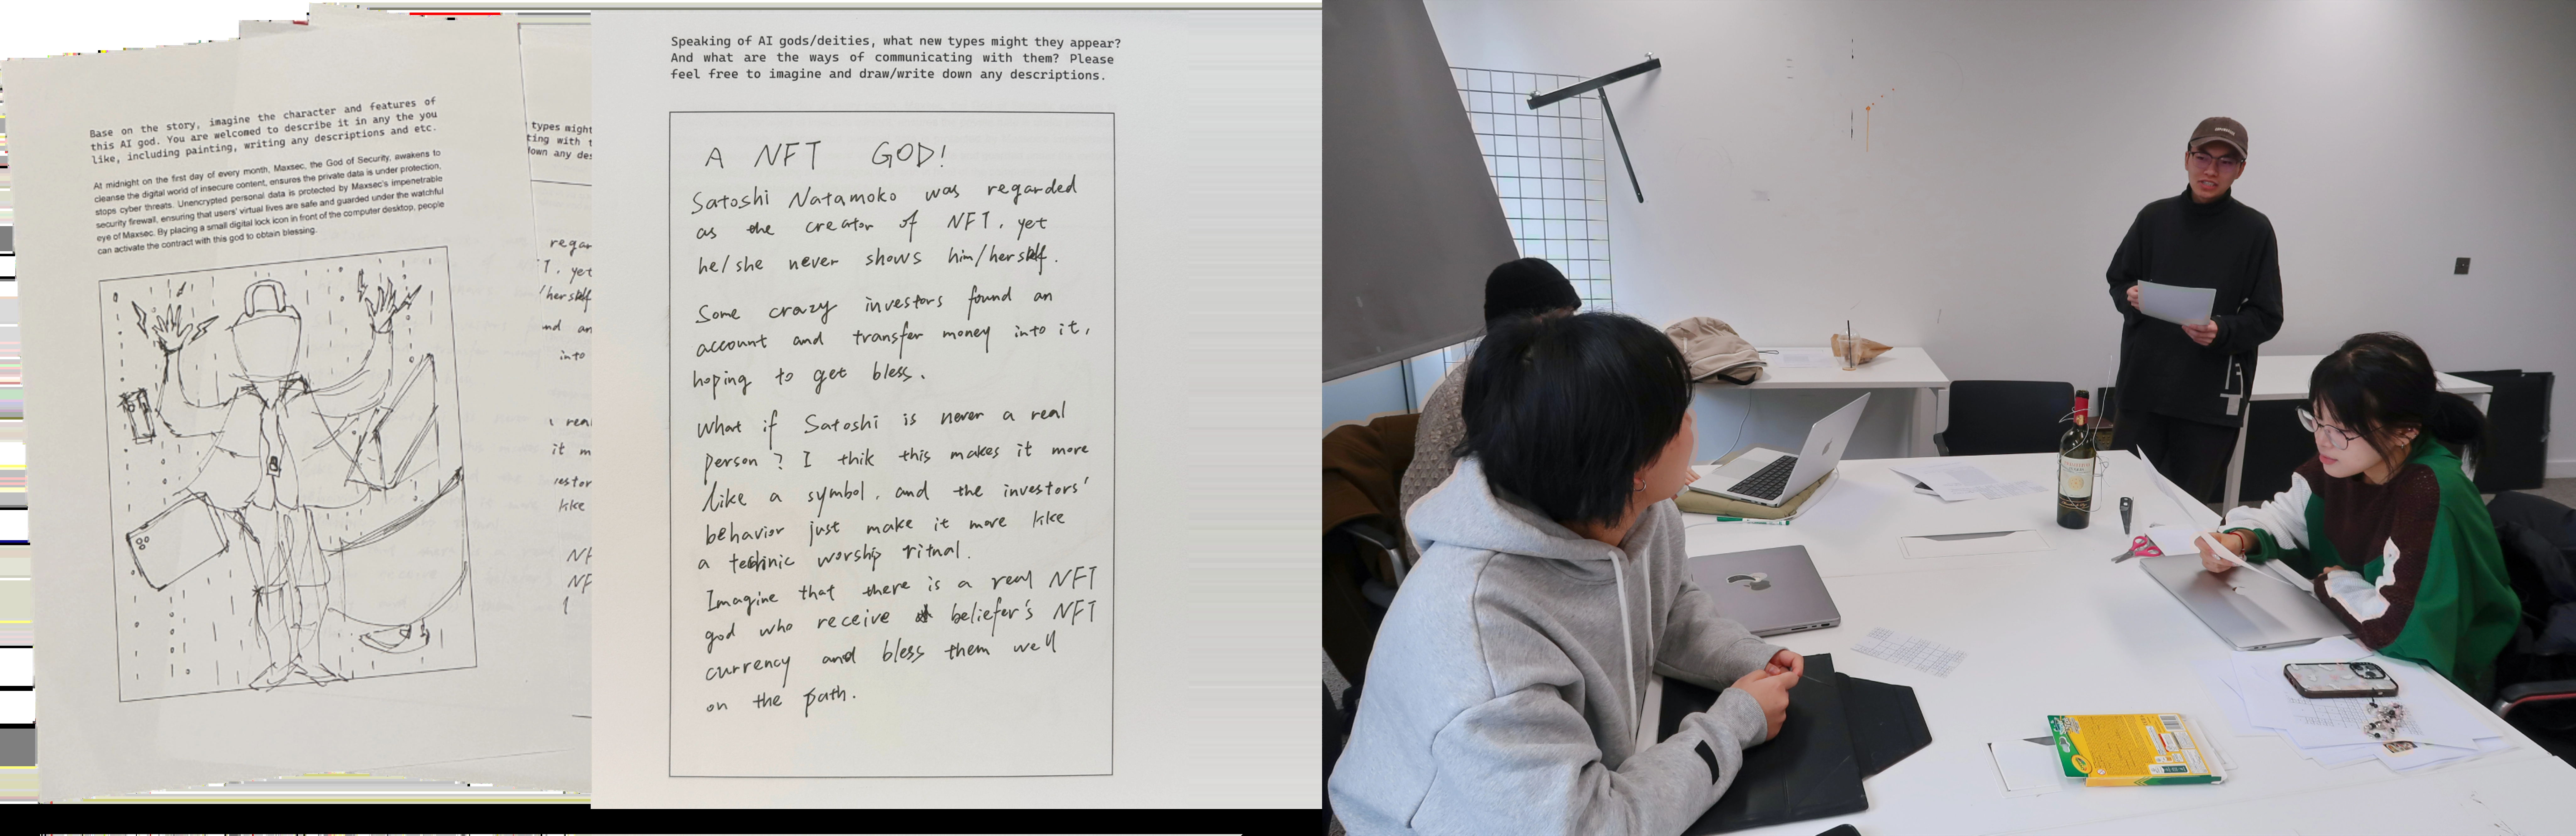 Base on the story, imagine the character and features of
this AI god. You are welcomed to describe it in any the you
like, including painting, writing any descriptions and etc.
At midnight on the first day of every month, Maxsec, the God of Security, awakens to
cleanse the digital world of insecure content, ensures the private data is under protection,
stops cyber threats. Unencrypted personal data is protected by Maxsec's impenetrable
security firewall, ensuring that users' virtual lives are safe and guarded under the watchful
eye of Maxsec. By placing a small digital lock icon in front of the computer desktop, people
can activate the contract with this god to obtain blessing.
types might
ting with
down any des
regar
T. yet
/herself
nd an
into
real
it m
estor
like
NF
NF
Speaking of AI gods/deities, what new types might they appear?
And what are the ways of communicating with them? Please
feel free to imagine and draw/write down any descriptions.
A NFT GOD!
Satoshi Natamoko was regarded
as the creator of NFT, yet
he/she never shows him/herself.
Some crazy investors found an
account and transfer money into it,
hoping to get bless.
What if Satoshi is never a real
person? I thik this makes it more
like a symbol, and the investors'
behavior just make it more like
a technic worship ritual.
Imagine that there is a real NFT
god who receive beliefer's NFT
currency and bless them well
on the path.